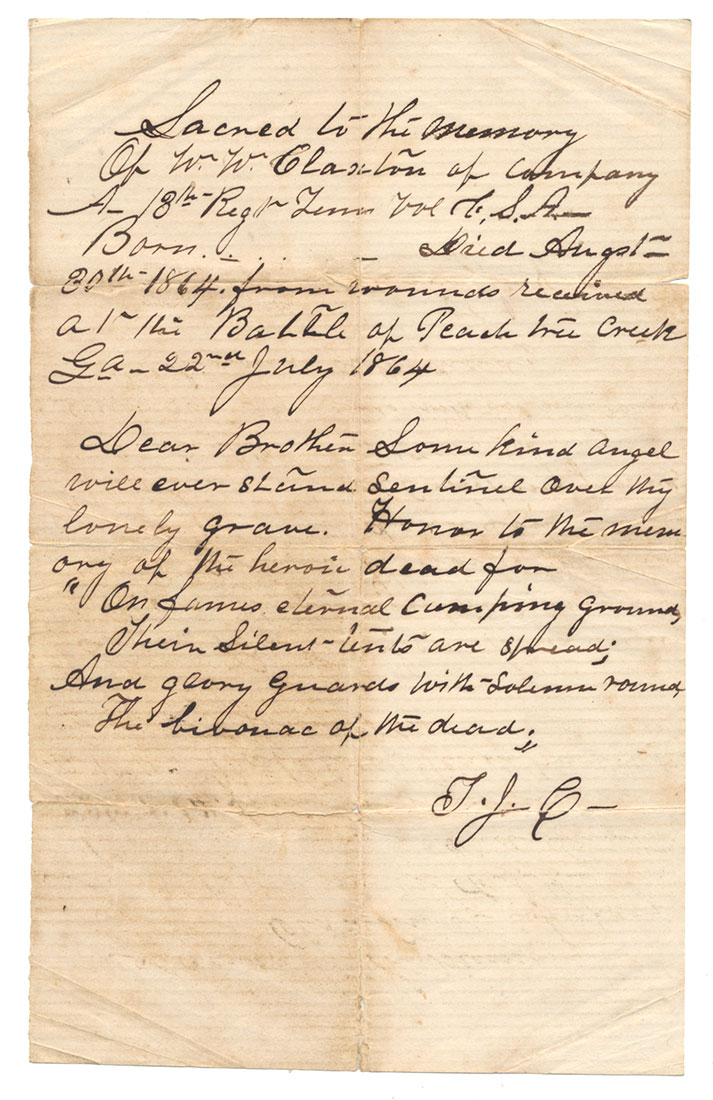 Sacred to the memory
Of W. W. Claxton of company
A- 18th Regt Tenn Vol C.S.A-
Born. . . . - Died Augst-
30th 1864. from wounds received
at the Battle of Peach tree Creek
Ga- 22nd July 1864
Dear Brother Some kind angel
will ever stand Sentinel over thy
lonely grave. Honor to the mem
ory of the heroic dead for
"On fames eternal camping ground,
Their Silent tents are spread;
And glory guards with Solemn round,
The bivouac of the dead;"
T. J. C-